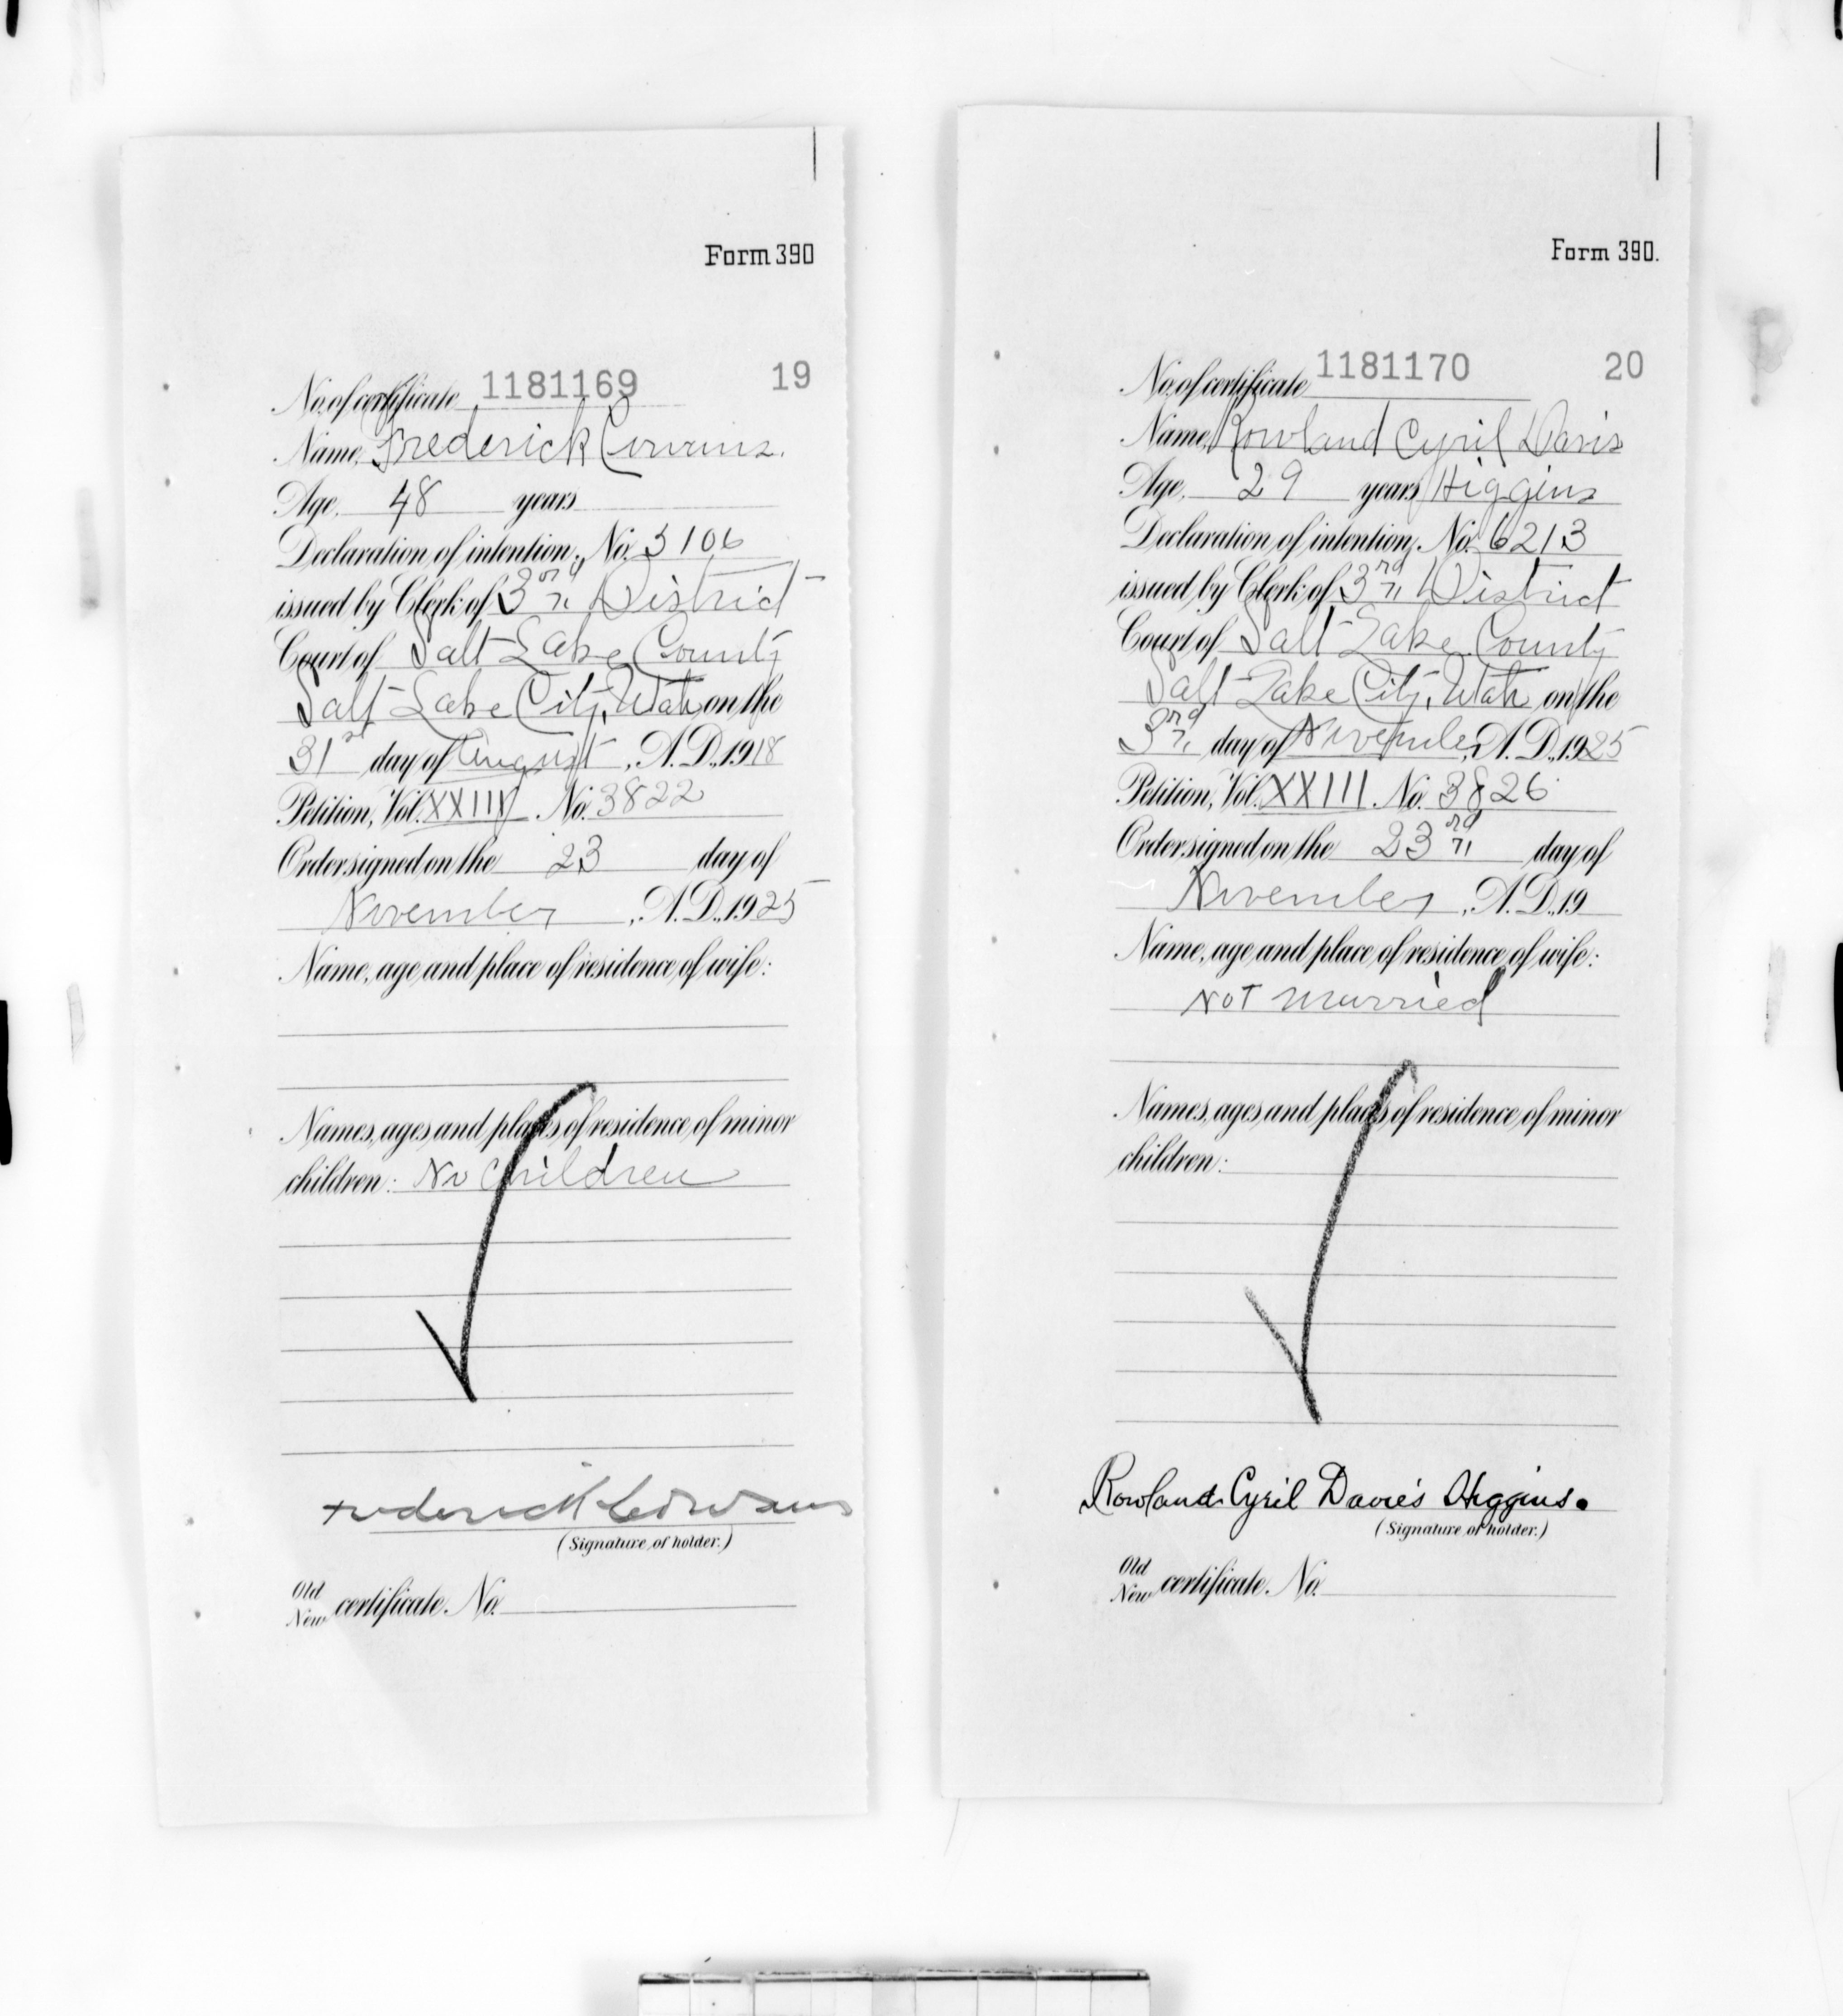 Form 390
No. of certificate 1181169 19
Name, Frederick
Age, 48 years
Declaration of intention, No. 3106
issued by Clerk of 3rd District
Court of Salt Lake County
Salt Lake City, Utah on the
31st day of August, A. D., 1918
Petition, Vol. XXIII No. 3822
Order signed on the 23 day of
November, A. D., 1925
Name, age and place of residence of wife:
Names, ages and places of residence of minor
children: No Children
Frederick
(Signature of holder.)
Old
New certificate No.
Form 390.
No. of certificate 1181170 20
Name, Rowland Cyril Davis
Age, 29 years Higgins
Declaration of intention, No. 6213
issued by Clerk of 3rd District
Court of Salt Lake County
Salt Lake City, Utah on the
3rd day of November, A. D., 1925
Petition, Vol. XXIII. No. 3826
Order signed on the 23rd day of
November, A. D., 19
Name, age and place of residence of wife:
Not Married
Names, ages and places of residence of minor
children:
Rowland Cyril Davies Higgins.
(Signature of holder.)
Old
New certificate No.